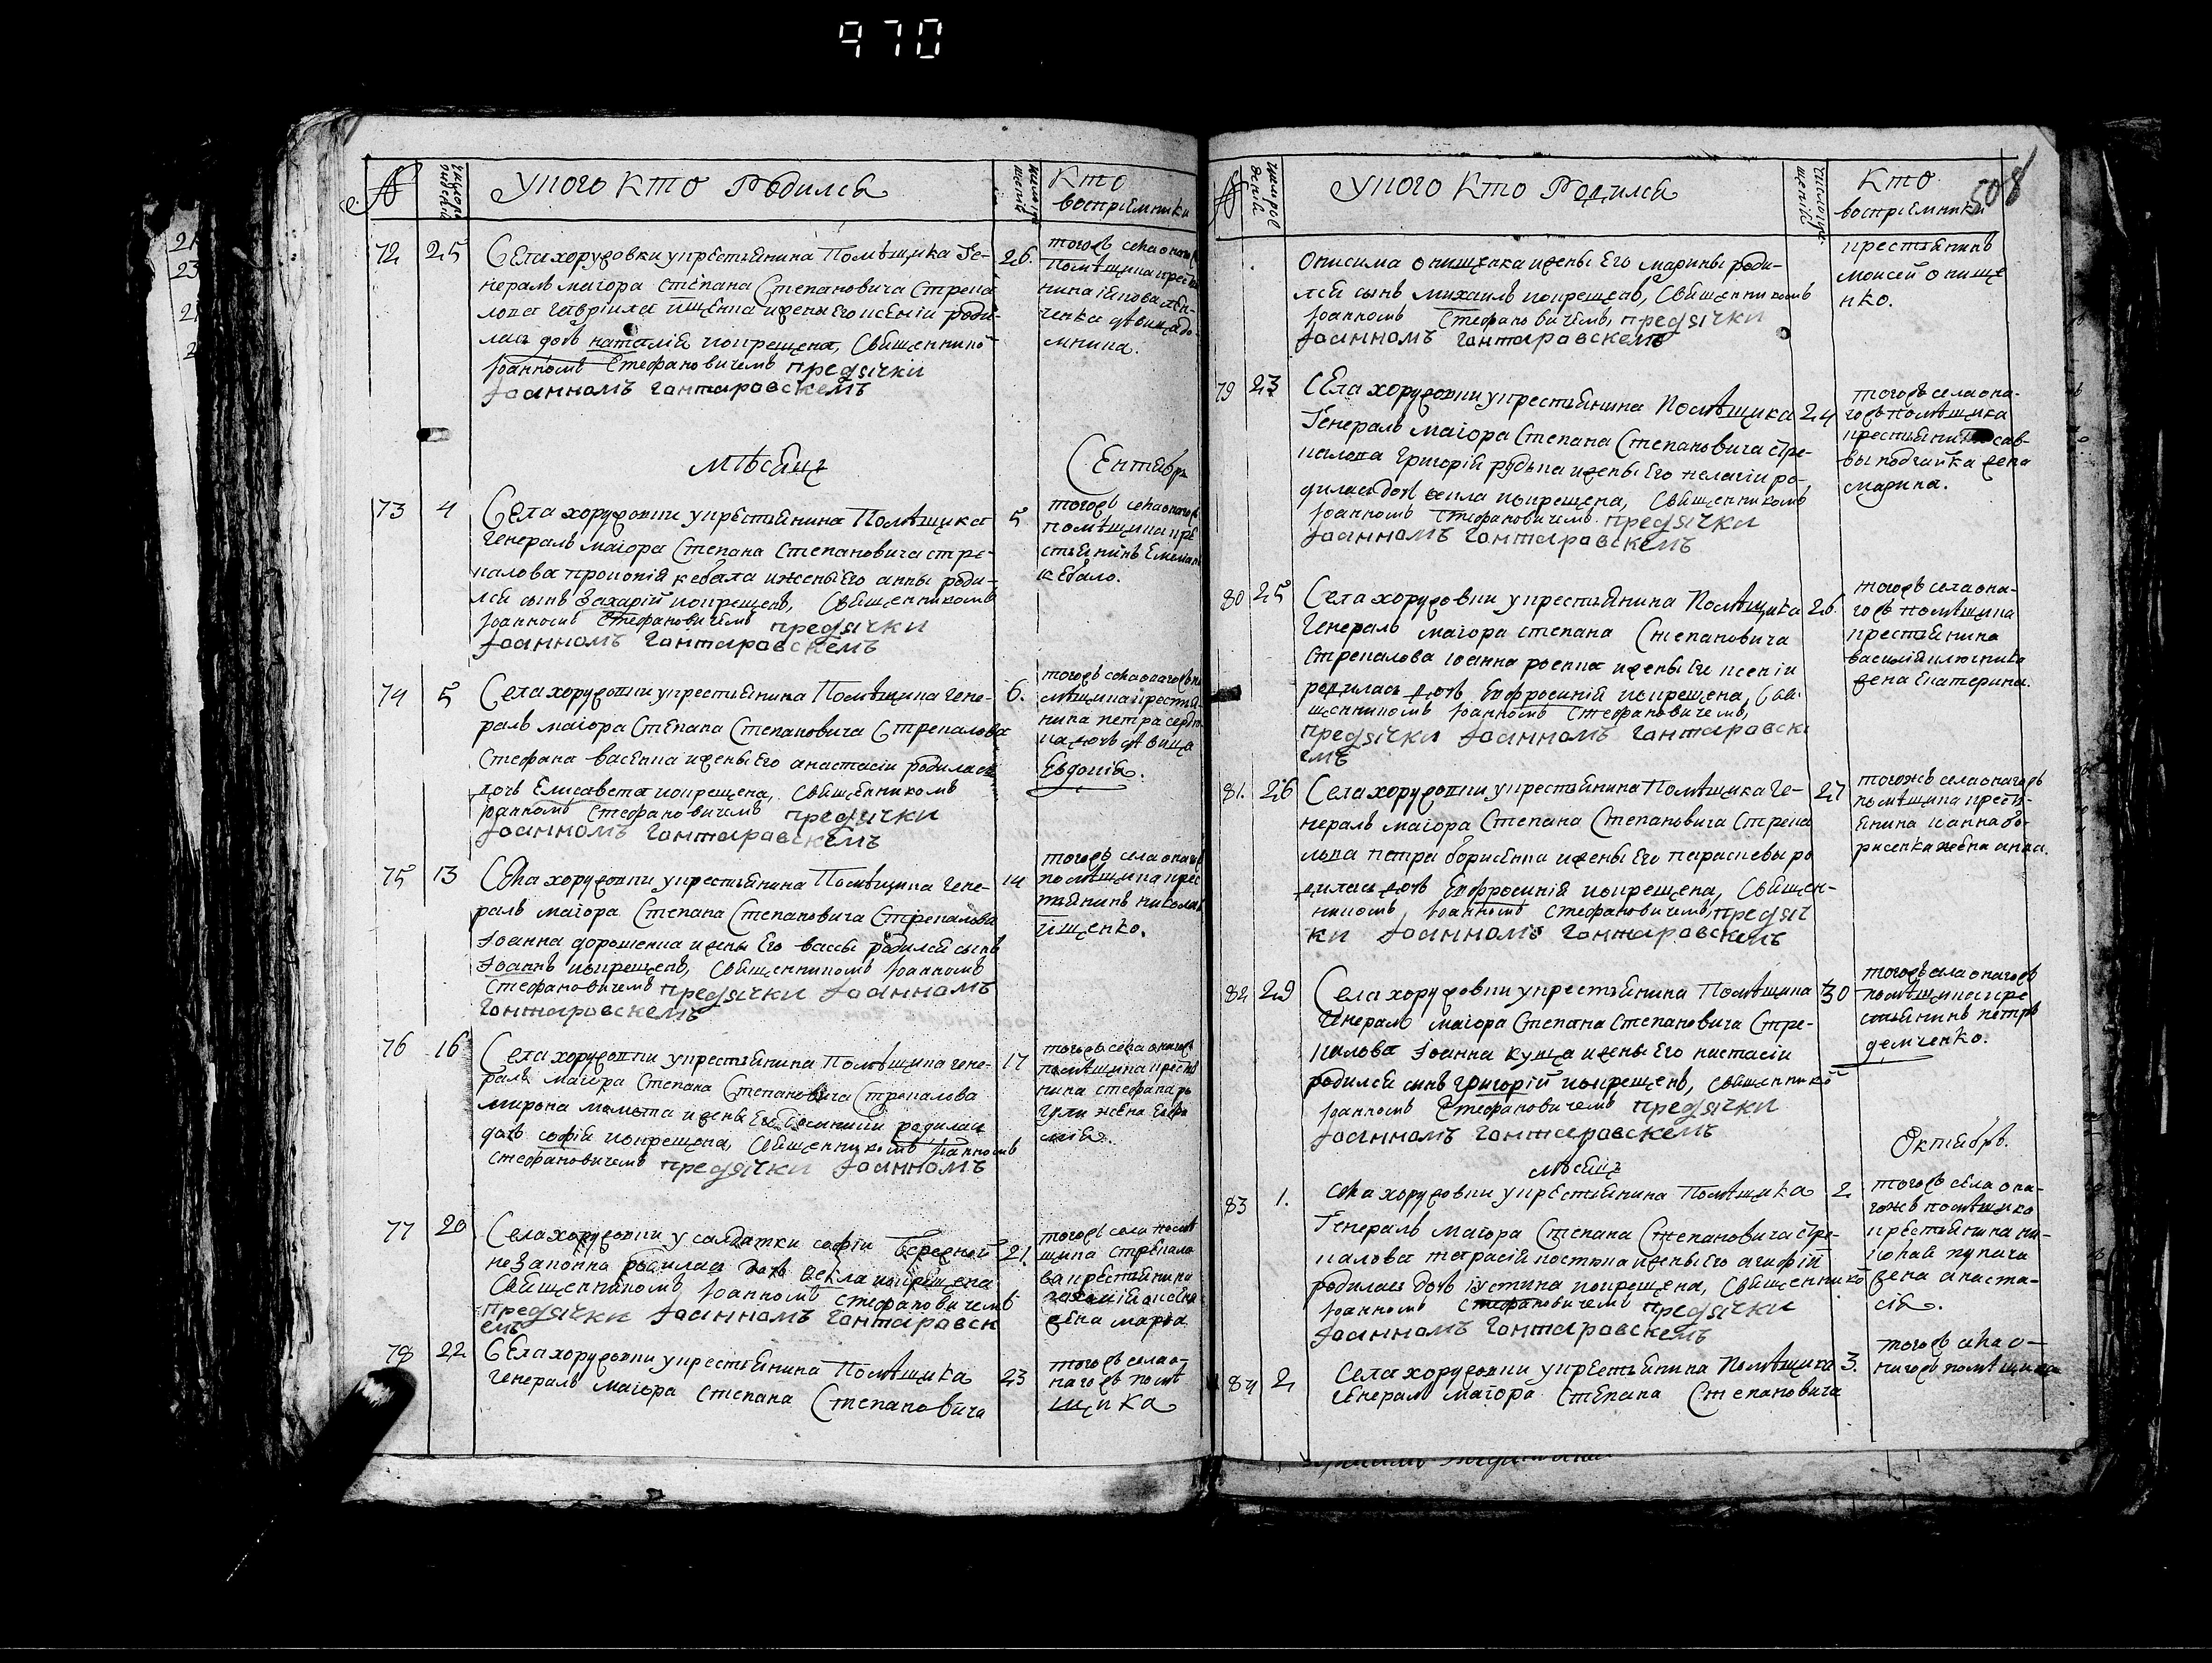 970
№
число рождения
У кого кто Родился
число крещения
Кто
восприемники
72
25
Села хоружовки у крестьянина Помѣщика Ге-
нералъ маиора степана Степановича Стрека
лова гавріила ищенка и жены его ксеніи роди-
лась дочь наталія крещена, Священнико
Іоанномъ Стефановичемъ при дячки
Іоанномъ Гонтаровскемъ
26.
тогожъ села оног
Помѣщика крест
мнина.
Мѣсяцъ
Сентябрь
73
4
Села хоружовки у крестьянина Помѣщика
Генералъ маиора Степана Степановича стре-
калова прокопія кебала и жены его анны роди-
лся сынъ Захарій крещенъ, Священникомъ
Іоанномъ Стефановичемъ при дячки
Іоанномъ Гонтаровскемъ
5
тогожъ села оног
помѣщика кре
стьянинъ Емелиан
кебало.
74
5
Села хоружовки у крестьянина Помѣщика гене-
ралъ маиора Степана Степановича Стрекалова
Стефана васенка и жены Его анастасіи родилась
дочь Елисавета крещена, Священникомъ
Іоанномъ Стефановичемъ при дячки
Іоанномъ Гонтаровскемъ
6.
нина петра серд
ка дочь дѣвица
Евдокія.
75
13
Села хоружовки у крестьянина Помѣщика гене-
ралъ маиора Степана Степановича Стрекалова
Іоанна дорошенка и жены Его вассы родился сынъ
Іоаннъ крещенъ, Священникомъ Іоанномъ
Стефановичемъ при дячки Іоанномъ
Гонтаровскемъ
14
тогожъ села оног
помѣщика крес
тьянинъ никола
ищенко.
76
16
Села хоружовки у крестьянина Помѣщика гене-
ралъ маиора Степана Степановича Стрекалова
мирона и жены Его родилас
дочь софія крещена, Священникомъ Іоанномъ
Стефановичемъ при дячки Іоанномъ
17
тогожъ села оног
помѣщика крестя
нина стефана
жена
77
20
Села хоружовки у салдатки софіи Бережной
незаконна родилась дочь текла крещена
Священникомъ Іоанномъ Стефановичемъ
при дячки Іоанномъ Гонтаровск
емъ
21.
тогожъ села помѣ
щика стрекало
ва крестьянина
жена марѳа
78
22
Села хоружовки у крестьянина Помѣщика
генералъ маиора степана Степановича
23
тогожъ села о-
ногожъ помѣ
щика
508
№
число рождения
У кого кто Родился
число крещения
Кто
восприемники
Онисима онищенка и жены Его марины роди-
лся сынъ михаилъ крещенъ, Священникомъ
Іоанномъ Стефановичемъ, при дячки
Іоанномъ Гонтаровскемъ
крестьянинъ
моисей онище
нко.
79
23
Села хоружовки у крестьянина Помѣщика
Генералъ маиора Степана Степановича стре-
калова григорія рудька и жены Его пелагіи ро-
дилась дочь текла крещена, Священникомъ
Іоанномъ Стефановичемъ при дячки
Іоанномъ Гонтаровскемъ
24
тогожъ села оно-
гожъ помѣщика
крестьянина сав-
вы подгайка жена
марина.
80
25
Села хоружовки у крестьянина Помѣщика
генералъ маиора степана Степановича
стрекалова іоанна роенка и жены Его ксеніи
родилась дочь Евфросинія крещена, Свя-
щенникомъ Іоанномъ Стефановичемъ,
при дячки Іоанномъ Гонтаровск
емъ
26.
тогожъ села оно-
гожъ помѣщика
крестьянина
василія
жена Екатерина.
81.
26
Села хоружовки у крестьянина Помѣщика Ге-
нералъ маиора Степана Степановича Стрека
лова петра борисенка и жены Его параскевы ро
дилась дочь Евфросинія крещена, Священ-
никомъ, Іоанномъ Стефановичемъ, при дяч
ки Іоанномъ Гонтаровскемъ
27
тогожъ села оногожъ
помѣщика крестъ-
янина іоанна бо-
рисенка жена анна.
82
29
Села хоружовки у крестьянина Помѣщика
Генералъ маиора Степана Степановича Стре-
калова Іоанна куща и жены Его настасіи
родился сынъ григорій крещенъ, Священнико
Іоанномъ Стефановичемъ при дячки
Іоанномъ Гонтаровскемъ
30
тогожъ села оногожъ
помѣщика кре
стьянинъ петръ
демченко.
мѣсяцъ
Октябрь.
83
1.
Села хоружовки у крестьянина Помѣщика
Генералъ маиора Степана Степановича стре-
калова тарасія костюка и жены Его агафіи
родилась дочь іустина крещена, Священнико
Іоанномъ Стефановичемъ при дячки
Іоанномъ Гонтаровскемъ
2
тогожъ села оно-
гожъ помѣщика
крестьянина ни-
колая
жена анаста-
сія.
84
2
Села хоружовки у крестьянина Помѣщика
генералъ маиора Степана Степановича
3.
тогожъ села о-
ногожъ помѣщика